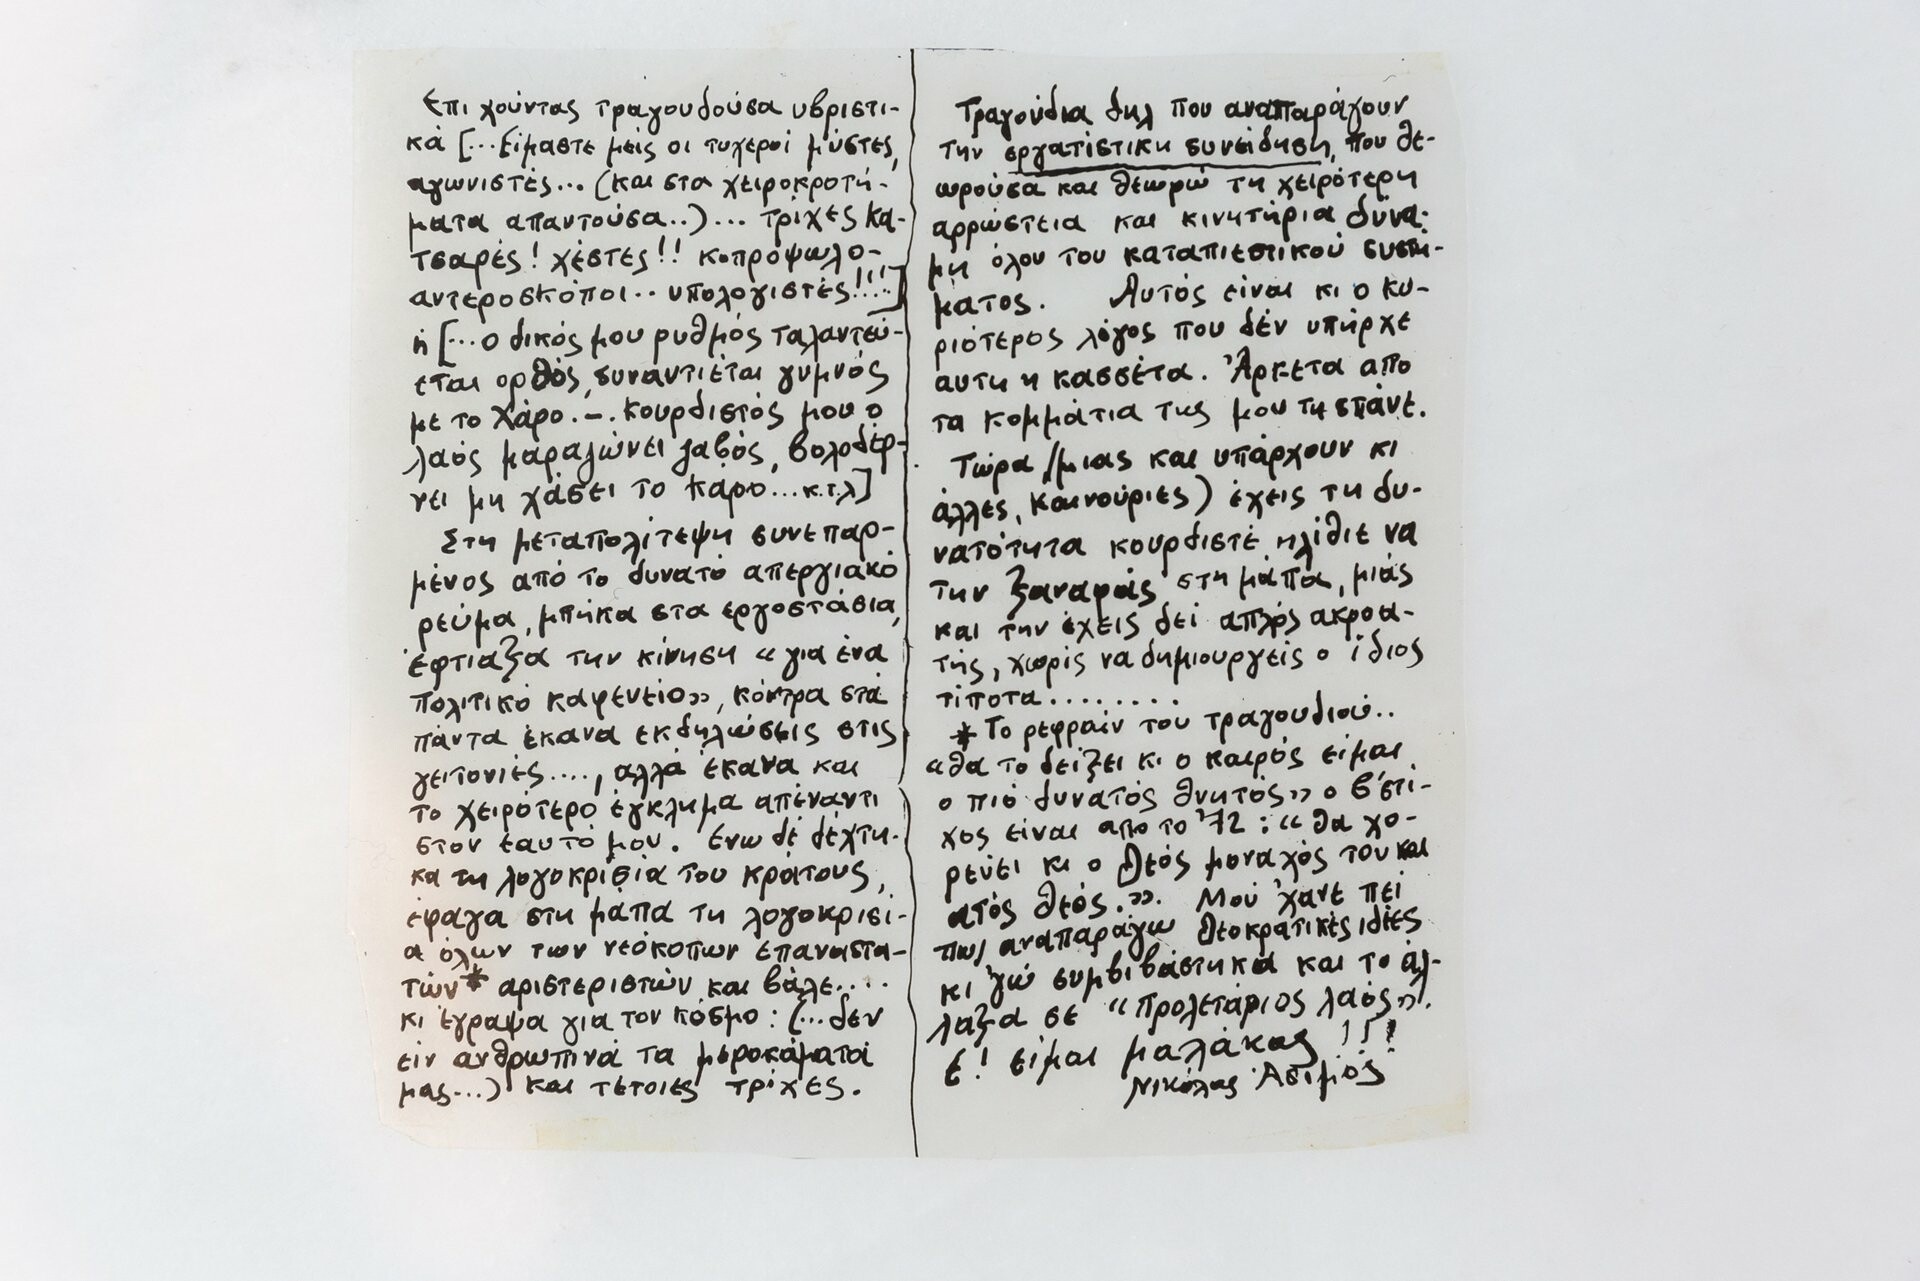 Επι χούντας τραγουδούσα υβριστι-
κά [...Είμαστε μείς οι τυχεροί μύστες,
αγωνιστές... (και στα χειροκροτή-
ματα απαντούσα..)... τρίχες κα-
τσαρές! χέστες!! κοπρόψωλο-
αντεροσκόποι.. υπολογιστές!!!..]
ή [...ο δικός μου ρυθμός ταλαντεύ-
εται ορθός, συναντιέται γυμνός
με το Χάρο.–. Κουρδιστός μου ο
λαός μαραζώνει ζαβός, βολοδέρ-
νει μη χάσει το κάρο...κ.τ.λ]
Στη μεταπολίτεψη συνεπαρ-
μένος από το δυνατό απεργιακό
ρεύμα, μπήκα στα εργοστάσια,
έφτιαξα την κίνηση «για ένα
πολιτικό καφενείο», κόντρα στά
πάντα έκανα εκδηλώσεις στις
γειτονιές...., αλλά έκανα και
το χειρότερο έγκλημα απέναντι
στον εαυτό μου. Ενω δέ δέχτη-
κα τη λογοκρισία του κράτους,
έφαγα στη μάπα τη λογοκρισί-
α όλων των νεόκοπων επαναστα-
τών* αριστεριστών και βάλε....
κι έγραψα για τον κόσμο: (...δεν
είν ανθρωπινά τα μεροκάματά
μας...) και τέτοιες τρίχες.
Τραγούδια δηλ που αναπαράγουν
την εργατίστικη συνείδηση, που θε-
ωρούσα και θεωρώ τη χειρότερη
αρρώστεια και κινητήρια δύνα-
μη όλου του καταπιεστικού συστή-
ματος. Αυτός είναι κι ο κυ-
ριότερος λόγος που δέν υπήρχε
αυτη η κασσέτα. Άρκετα απο
τα κομμάτια της μου τη σπάνε.
Τώρα (μιας και υπάρχουν κι
άλλες, καινούριες) έχεις τη δυ-
νατότητα κουρδιστέ ηλίθιε να
την ξαναφάς στη μάπα, μιάς
και την έχεις δεί απλός ακροα-
τής, χωρίς να δημιουργείς ο ίδιος
τίποτα........
* Το ρεφραίν του τραγουδιού..
«θα το δείξει κι ο καιρός είμαι
ο πιό δυνατός θνητός» ο β'στί-
χος είναι απο το '72: «θα χο-
ρεύει κι ο θεός μοναχός του και
ατός θεός.». Μού 'χανε πεί
πως αναπαράγω θεοκρατικές ιδέες
κι 'γώ συμβιβάστηκα και το άλ-
λαξα σε "προλετάριος λαός».
Ε! είμαι μαλάκας!!!
Νικόλας Άσιμος